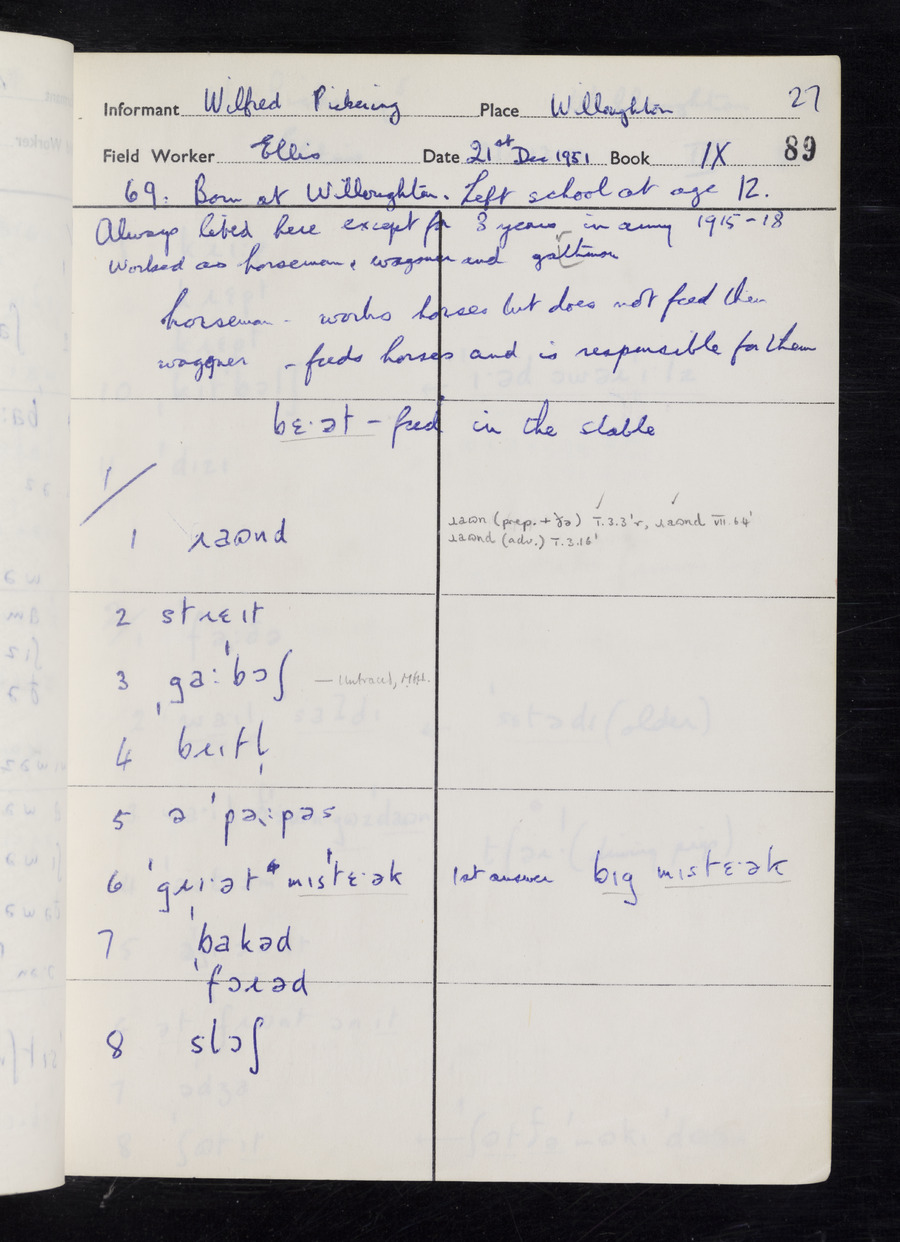 Informant Wilfred Pickering Place Willoughton 27
Field Worker Ellis Date 21st Dec 1951 Book IX 89
69. Born at Willoughton. Left school at age 12.
Always lived here except for 3 years in army 1915-18
Worked as horseman, wagoner and
horseman - works horses but does not feed them
waggner - feeds horses and is responsible for them
bɛ·ət - feed in the stable
1/
1 ɹaʊnd
ɹaʊn (prep. + ðə) I.3.3'r, ɹaʊnd VII.64'
ɹaʊnd (adv.) I.3.16'
2 stɹɛɪt
3 ˌgaːˈbɔʃ — Untraced,
4 ˈbɹɪtl̩
5 ə ˈpəːpəs
6 ˈgɹɪ·ət mɪsˈtɛ·ək 1st answer big mɪstɛ·ək
7 ˈbakəd
ˈfɔɹəd
8 slɔʃ